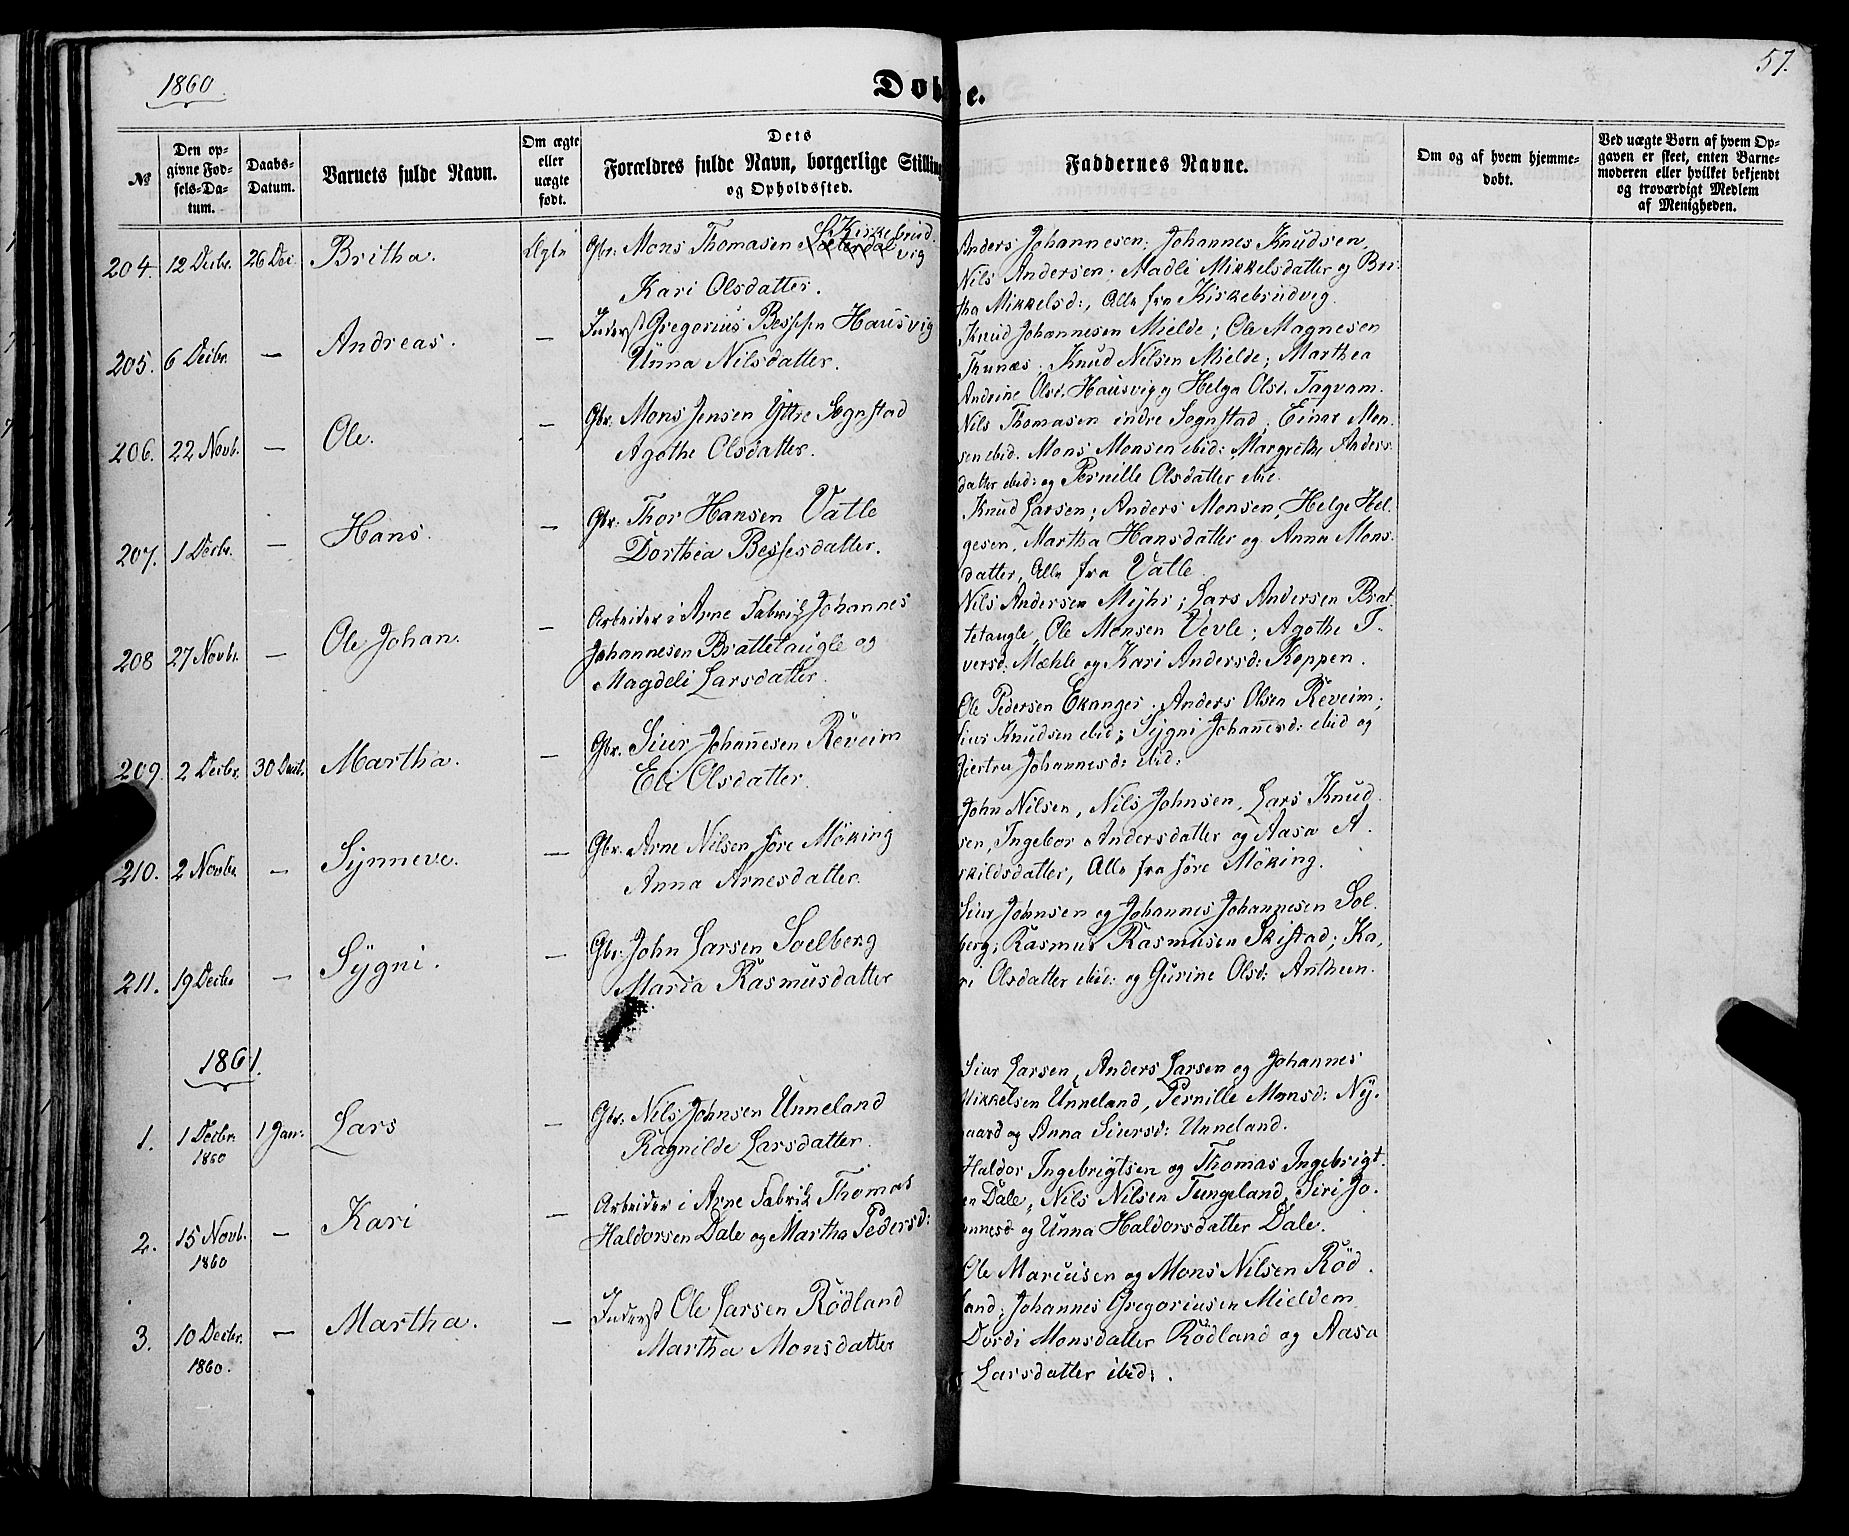 1860
57.
Døbte.
No
Den op-
givne Fød-
sels-Da-
tum.
Daabs-
Datum.
Barnets fulde Navn.
Om ægte
eller
uægte
født.
Dets
Forældres fulde Navn, borgerlige Stilling
og Opholdssted.
Faddernes Navne.
Om og af hvem hjemme-
døbt.
Ved uægte Børn af hvem Op-
gaven er skeet, enten Barne-
moderen eller hvilket bekjendt
og troværdigt Medlem
af Menigheden.
204. 12 Decbr. 26 Dec. Britha. Ægte Gbr. Mons Thomasen Kirkebrud-
vig
Kari Olsdatter.
Anders Johannesen; Johannes Knudsen,
Nils Andersen. Madli Mikkelsdatter og Bri-
tha Mikkelsd:, Alle fra Kirkebrudvig.
205. 6 Decbr. — Andreas. — Inderst Gregorius Bessesen Hausvig
Unna Nilsdatter.
Knud Johannesen Mielde; Ole Magnesen
Thunæs. Knud Nilsen Mielde; Marthea
Andrine Olsd. Hausvig og Helga Olsd. Tagvam.
206. 22 Novb. — Ole. — Gbr. Mons Jensen Yttre Sognstad
Agothe Olsdatter.
Nils Thomasen indre Sognstad; Einar Mon-
sen ibid. Mons Monsen ibid: Margrethe Anders-
datter ibid: og Pernille Olsdatter ibid.
207. 1 Decbr. — Hans. — Gbr. Thor Hansen Vatle
Dorthea Bessesdatter.
Knud Larsen; Anders Monsen, Helge Hel-
gesen, Martha Hansdatter og Anna Mons-
datter, Alle fra Vatle
208 27 Novbr. — Ole Johan. — Arbeider i Arne Fabrik Johannes
Johannesen Brattetaugle og
Magdeli Larsdatter.
Nils Andersen Myhr; Lars Andersen Brat-
tetaugle, Ole Monsen Vevle; Agothe I-
versd: Mæhle og Kari Andersd: Koppen.
209. 2 Decbr. 30 Decb. Martha. — Gbr. Siur Johannesen Røveim
Eli Olsdatter.
Ole Pedersen Ekanger. Anders Olsen Røveim;
Siur Knudsen ibid; Sygni Johannesd: ibid og
Giertru Johannesd: ibid:
210. 2 Novbr. — Synneve. — Gbr. Arne Nilsen søre Møking
Anna Arnesdatter.
John Nilsen, Nils Johnsen, Lars Knud-
sen, Ingebor Andersdatter og Aasa A-
skildsdatter, Alle fra søre Møking.
211. 19 Decbr — Sygni. — Gbr. John Larsen Soelberg
Marta Rasmusdatter
Siur Johnsen og Johannes Johannesen Sol-
berg; Rasmus Rasmusen Skistad; Ka-
ri Olsdatter ibid: og Gurine Olsd: Anthun.
1861.
1. 1 Decbr. 1 Jan: Lars — Gbr: Nils Johnsen Unneland
1860
Ragnilde Larsdatter.
Siur Larsen, Anders Larsen og Johannes
Mikkelsen Unneland, Pernille Monsd: Ny-
gaard og Anna Siursd: Unneland.
2. 15 Novb. — Kari — Arbeider i Arne Fabrik Thomas
1860
Haldorsen Dale og Martha Pedersd:
Haldor Ingebrigtsen og Thomas Ingebrigt-
sen Dale, Nils Nilsen Tungeland, Siri Jo-
hannesd og Unna Haldorsdatter Dale.
3. 10 Decbr. — Martha. — Inderst Ole Larsen Rødland
1860.
Martha Monsdatter
Ole Marcusen og Mons Nilsen Rød-
land; Johannes Gregoriusen Mieldem
Dordi Monsdatter Rødland og Aasa
Larsdatter ibid:.